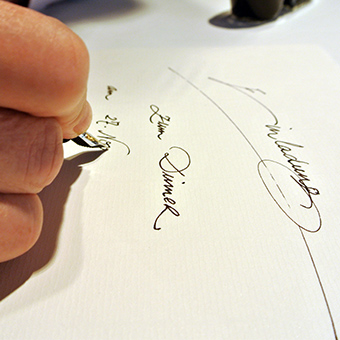 Einladung
zum Dinner
am 29. No